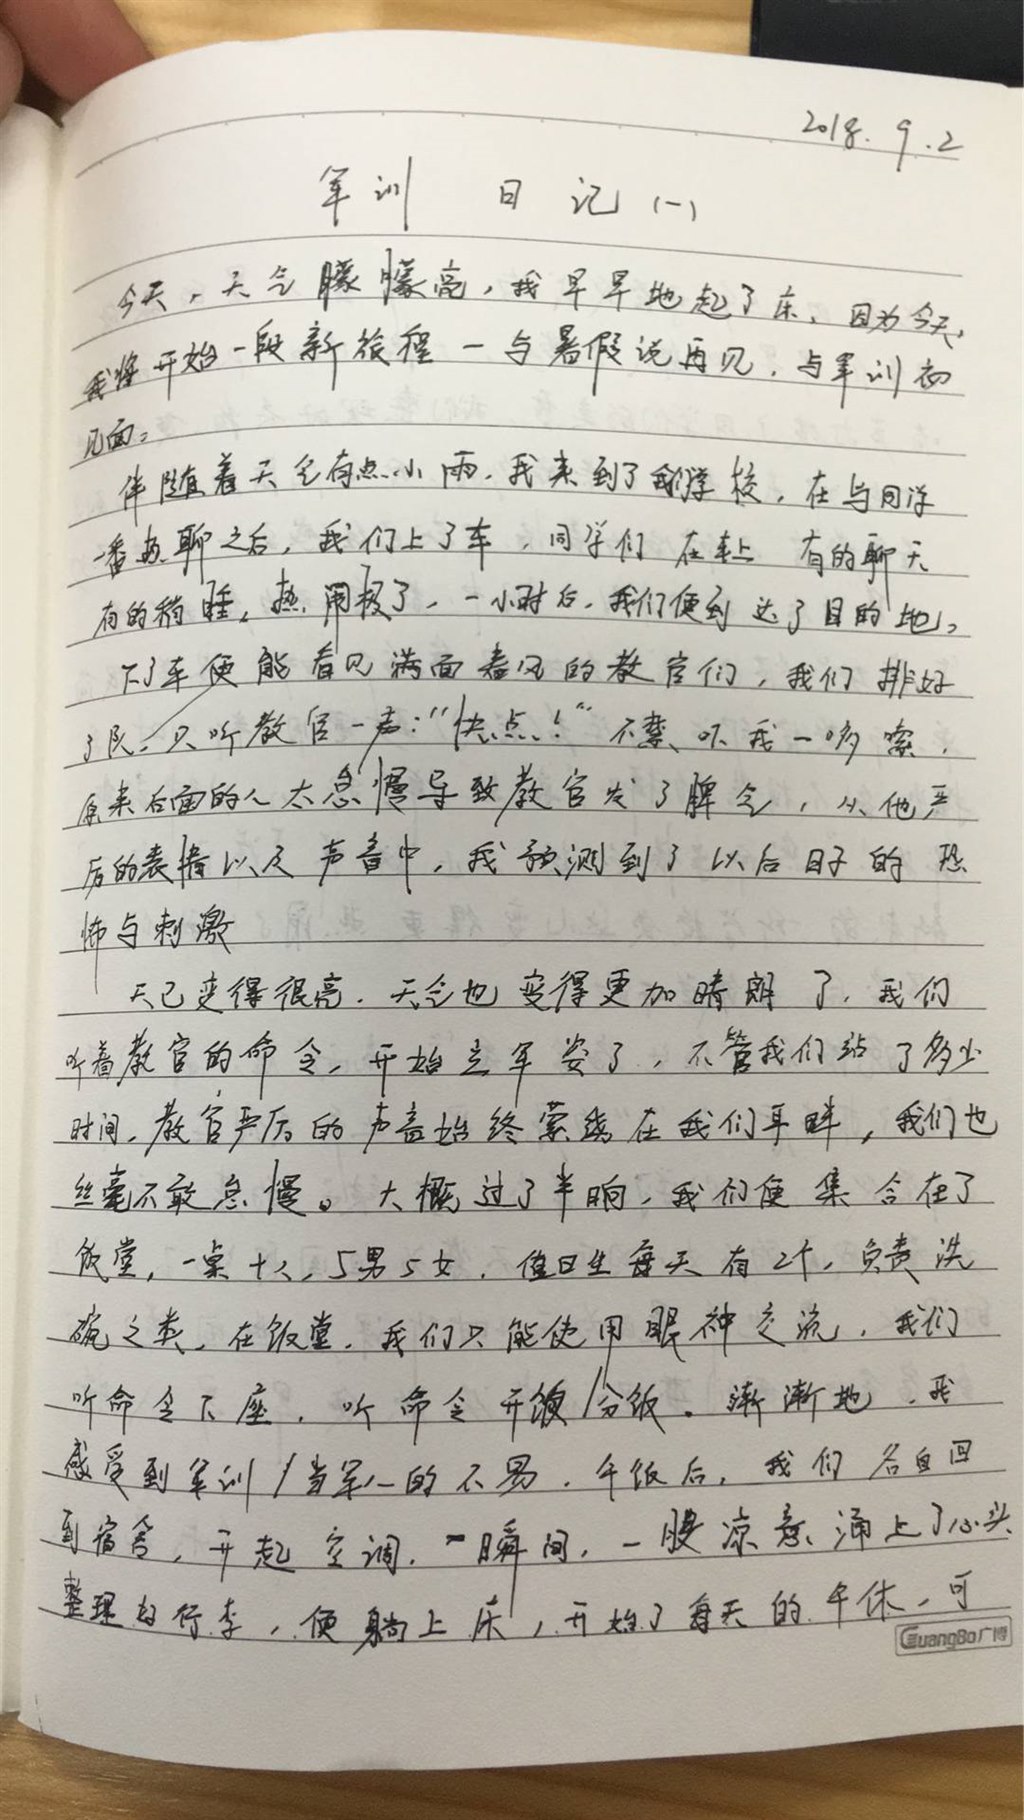 2018.9.2
军训 日记(一)
今天,天气朦朦亮,我早早地起了床,因为今天,
我将开始一段新旅程一与暑假说再见,与军训初
见面。
伴随着天空有点小雨,我来到了学校,在与同学
一番热聊之后,我们上了车,同学们在车上 有的聊天
有的稍睡,热闹极了,一小时后,我们便到达了目的地。
下了车便能看见满面春风的教官们,我们排好
了队,只听教官一声:“快点!”不禁吓我一哆嗦,
原来后面的人太怠慢导致教官发了脾气,从他严
厉的表情以及声音中,我预测到了以后日子的恐
怖与刺激
天已变得很亮,天气也变得更加晴朗了,我们
听着教官的命令,开始立军姿了,不管我们站了多少
时间,教官严厉的声音始终萦绕在我们耳畔,我们也
丝毫不敢怠慢。大概过了半晌,我们便集合在了
饭堂,一桌十人,5男5女,值日生每天有2个,负责洗
碗之类,在饭堂,我们只能使用眼神交流,我们
听命令下座,听命令开饭/分饭。渐渐地,我
感受到军训/当军人的不易,午饭后,我们各自回
到宿舍,开起空调,一瞬间,一股凉意涌上了心头
整理好行李,便躺上床,开始了每天的午休,可
GuangBo广博